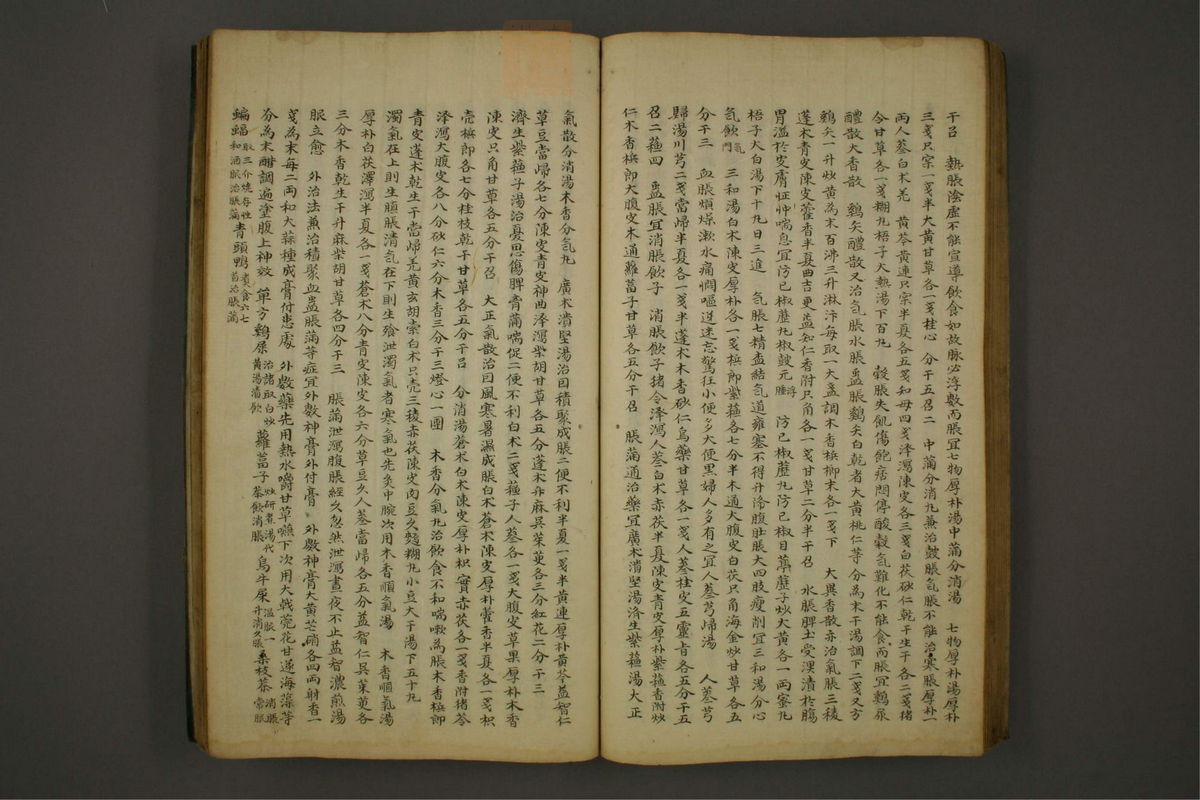 干召 熱脹陰虛不能宣導飲食如故脉必浮數而脹宜七物厚朴湯中滿分消湯 七物厚朴湯厚朴
三戔只宗一戔半大黃甘草各一戔桂心 分干五召二 中滿分消九兼治皷脹氣脹不能治寒脹厚朴一
兩人蔘白朮 黃芩黃連只宗半夏各五戔知母四戔泽瀉陳皮各三戔白茯砂仁乾干生干各二戔猪
令甘草各一戔糊九梧子大熱湯下百九 穀脹失飢傷飽痞悶停酸穀氣難化不能食而脹宜鷄屎
醴散大香散 鷄矢醴散又治氣脹水脹蠱脹鷄矢白乾者大黃桃仁等分為末干湯調下二戔又方
鷄矢一升炒黃為末百沸三升淋汁每取一大盞調木香梹榔末各一戔下 大異香散亦治氣脹三稜
蓬朮青皮陳皮藿香半夏曲吉更益知仁香附只角各一戔甘草二分半干召 水脹脾土受湿漬於膓
胃溢於皮膚怔忡喘息宜防己椒藶九椒豉元 浮腫 防己椒藶九防己椒目葶藶子炒大黃各一兩蜜九
梧子大白湯下十九日三進 氣脹七精盍結氣道雍塞不得升降腹肚脹大四肢瘦削宜三和湯分心
氣飮 氣門 三和湯白朮陳皮厚朴各一戔梹郎紫蘓各七分半木通大腹皮白茯只角海金炒甘草各五
分干三 血脹煩燥漱水痛憫嘔逆迷忘驚狂小便多大便黑婦人多有之宜人蔘芎歸湯 人蔘芎
歸湯川芎二戔當歸半夏各一戔半蓬朮木香砂仁烏藥甘草各一戔人蔘桂皮五靈旨各五分干五
召二蘓四 蠱脹宜消脹飮子 消脹飮子猪令泽瀉人蔘白朮赤茯半夏陳皮青皮厚朴紫蘓香附炒
仁木香梹郎大腹皮木通蘿葍子甘草各五分干召 脹滿通治藥宜廣朮潰堅湯済生紫蘓湯大正
氣散分消湯木香分氣九 廣朮潰堅湯治因積聚成脹二便不利半夏一戔半黃連厚朴黃芩益智仁
草豆當歸各七分陳皮青皮神曲泽瀉柴胡甘草各五分蓬朮升麻吳茱萸各三分紅花二分干三
濟生紫蘓子湯治憂思傷脾青滿喘促二便不利白朮二戔蘓子人蔘各一戔大腹皮草果厚朴木香
陳皮只角甘草各五分干召 大正氣散治因風寒暑濕成脹白朮蒼朮陳皮厚朴藿香半夏各一戔枳
壳梹郎各七分桂枝乾干甘草各五分干召 分消湯蒼朮白朮陳皮厚朴枳實赤茯各一戔香附猪苓
泽瀉大腹皮各八分砂仁六分木香三分干三燈心一團 木香分氣九治飮食不和喘嗽為脹木香梹郎
青皮蓬朮乾生干當歸 黃玄胡索白朮只壳三稜赤茯陳皮肉豆久 糊九小豆大干湯下五十九
濁氣在上則生䐜脹清氣在下則生飱泄濁氣者寒氣也先灸中腕次用木香順氣湯 木香順氣湯
厚朴白茯澤瀉半夏各一戔蒼朮八分青皮陳皮各六分草豆久人蔘當歸各五分益智仁吳茱萸各
三分木香乾生干升麻柴胡甘草各四分干三 脹滿泄瀉腹脹經久忽然泄瀉晝夜不止益智濃煎湯
服立愈 外治法兼治積聚血蠱脹滿等症宜外敷神膏外付膏 外敷神膏大黃芒硝各四兩射香一
戔為末每二兩和大蒜種成膏付患處 外敷藥先用熱水嚼甘草嚥下次用大戟莞花甘遂海藻等
分為末醋調遍塗腹上神效 單方鷄屎 治諸取白炒黃湯清飮 蘿葍子 炒研煮湯代茶飮消脹 烏牛尿 溫服一升消久脹 桑枝茶 消脹常服
蝙蝠 取三介燒存性和酒服治脹滿 青頭鴨 煮食六七首治脹滿